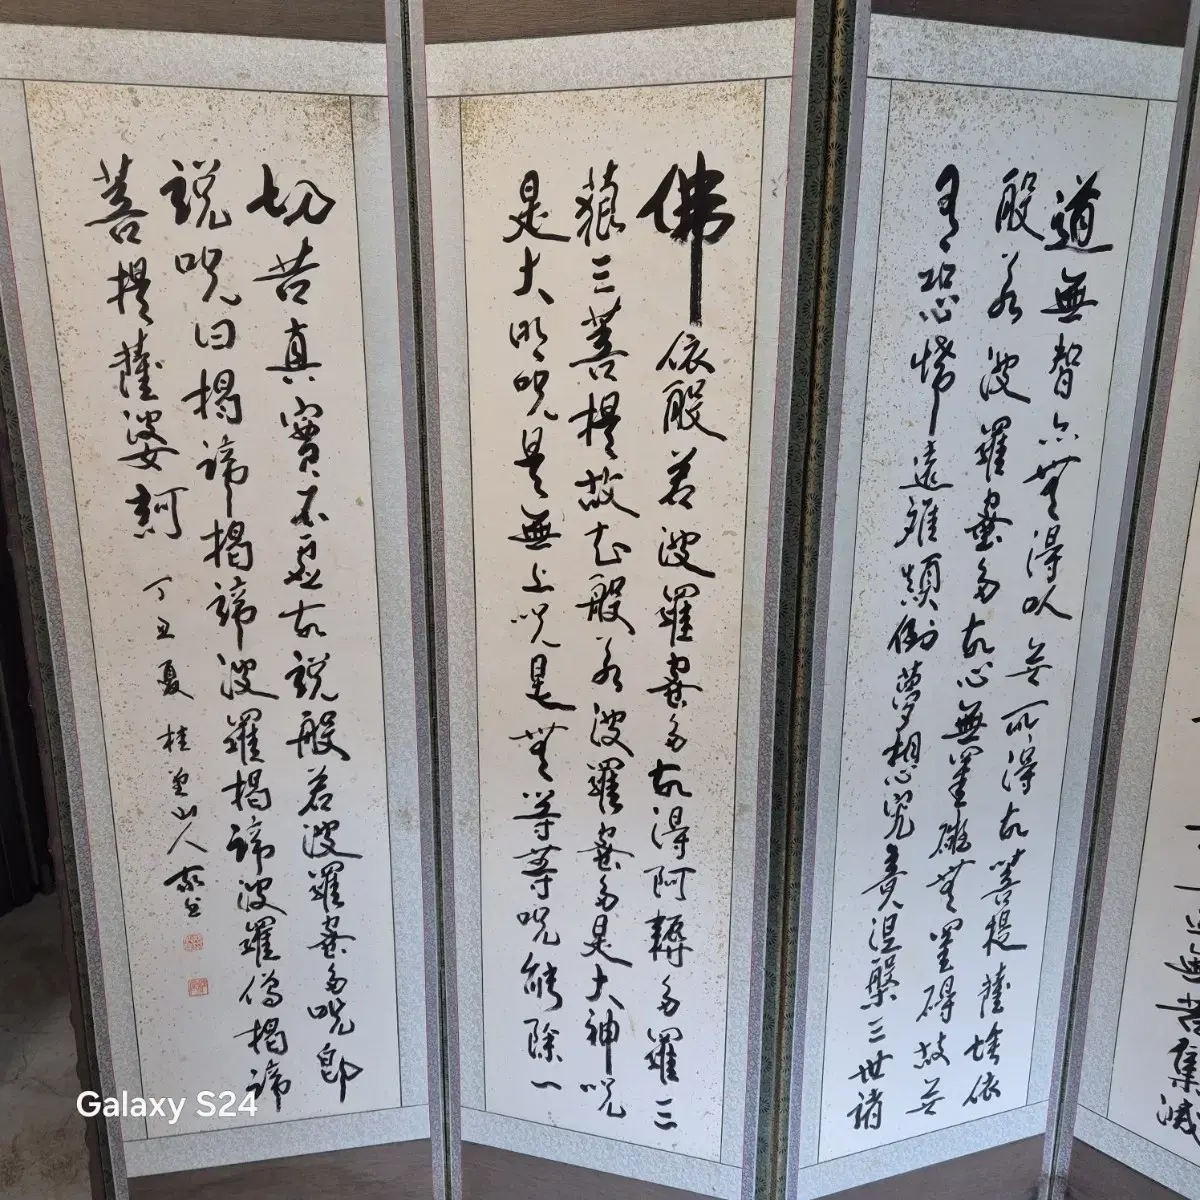 無苦集滅
道無智亦無得以無所得故菩提薩埵依
般若波羅蜜多故心無罣礙無罣碍故無
有恐怖遠離顛倒夢想究竟涅槃三世諸
佛依般若波羅蜜多故得阿耨多羅三
藐三菩提故知般若波羅蜜多是大神呪
是大明呪是無上呪是無等等呪能除一
切苦真實不虛故説般若波羅蜜多呪卽
説呪曰揭諦揭諦波羅揭諦波羅僧揭諦
菩提薩婆訶 丁丑夏 桂 山人
Galaxy S24